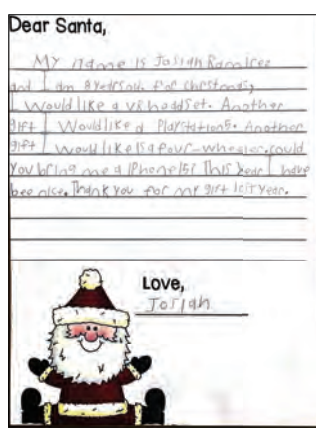 Dear Santa,
My name is Josiah Ramirez
and I am 8 years old. For christmas,
I would like a VR haddset. Another
gift I would like a Playstation5. Another
gift I would like is a four-wheeler. could
you bring me a iPhone15? This year I have
bee nice. Thank you for my gift last year.
Love,
Josiah